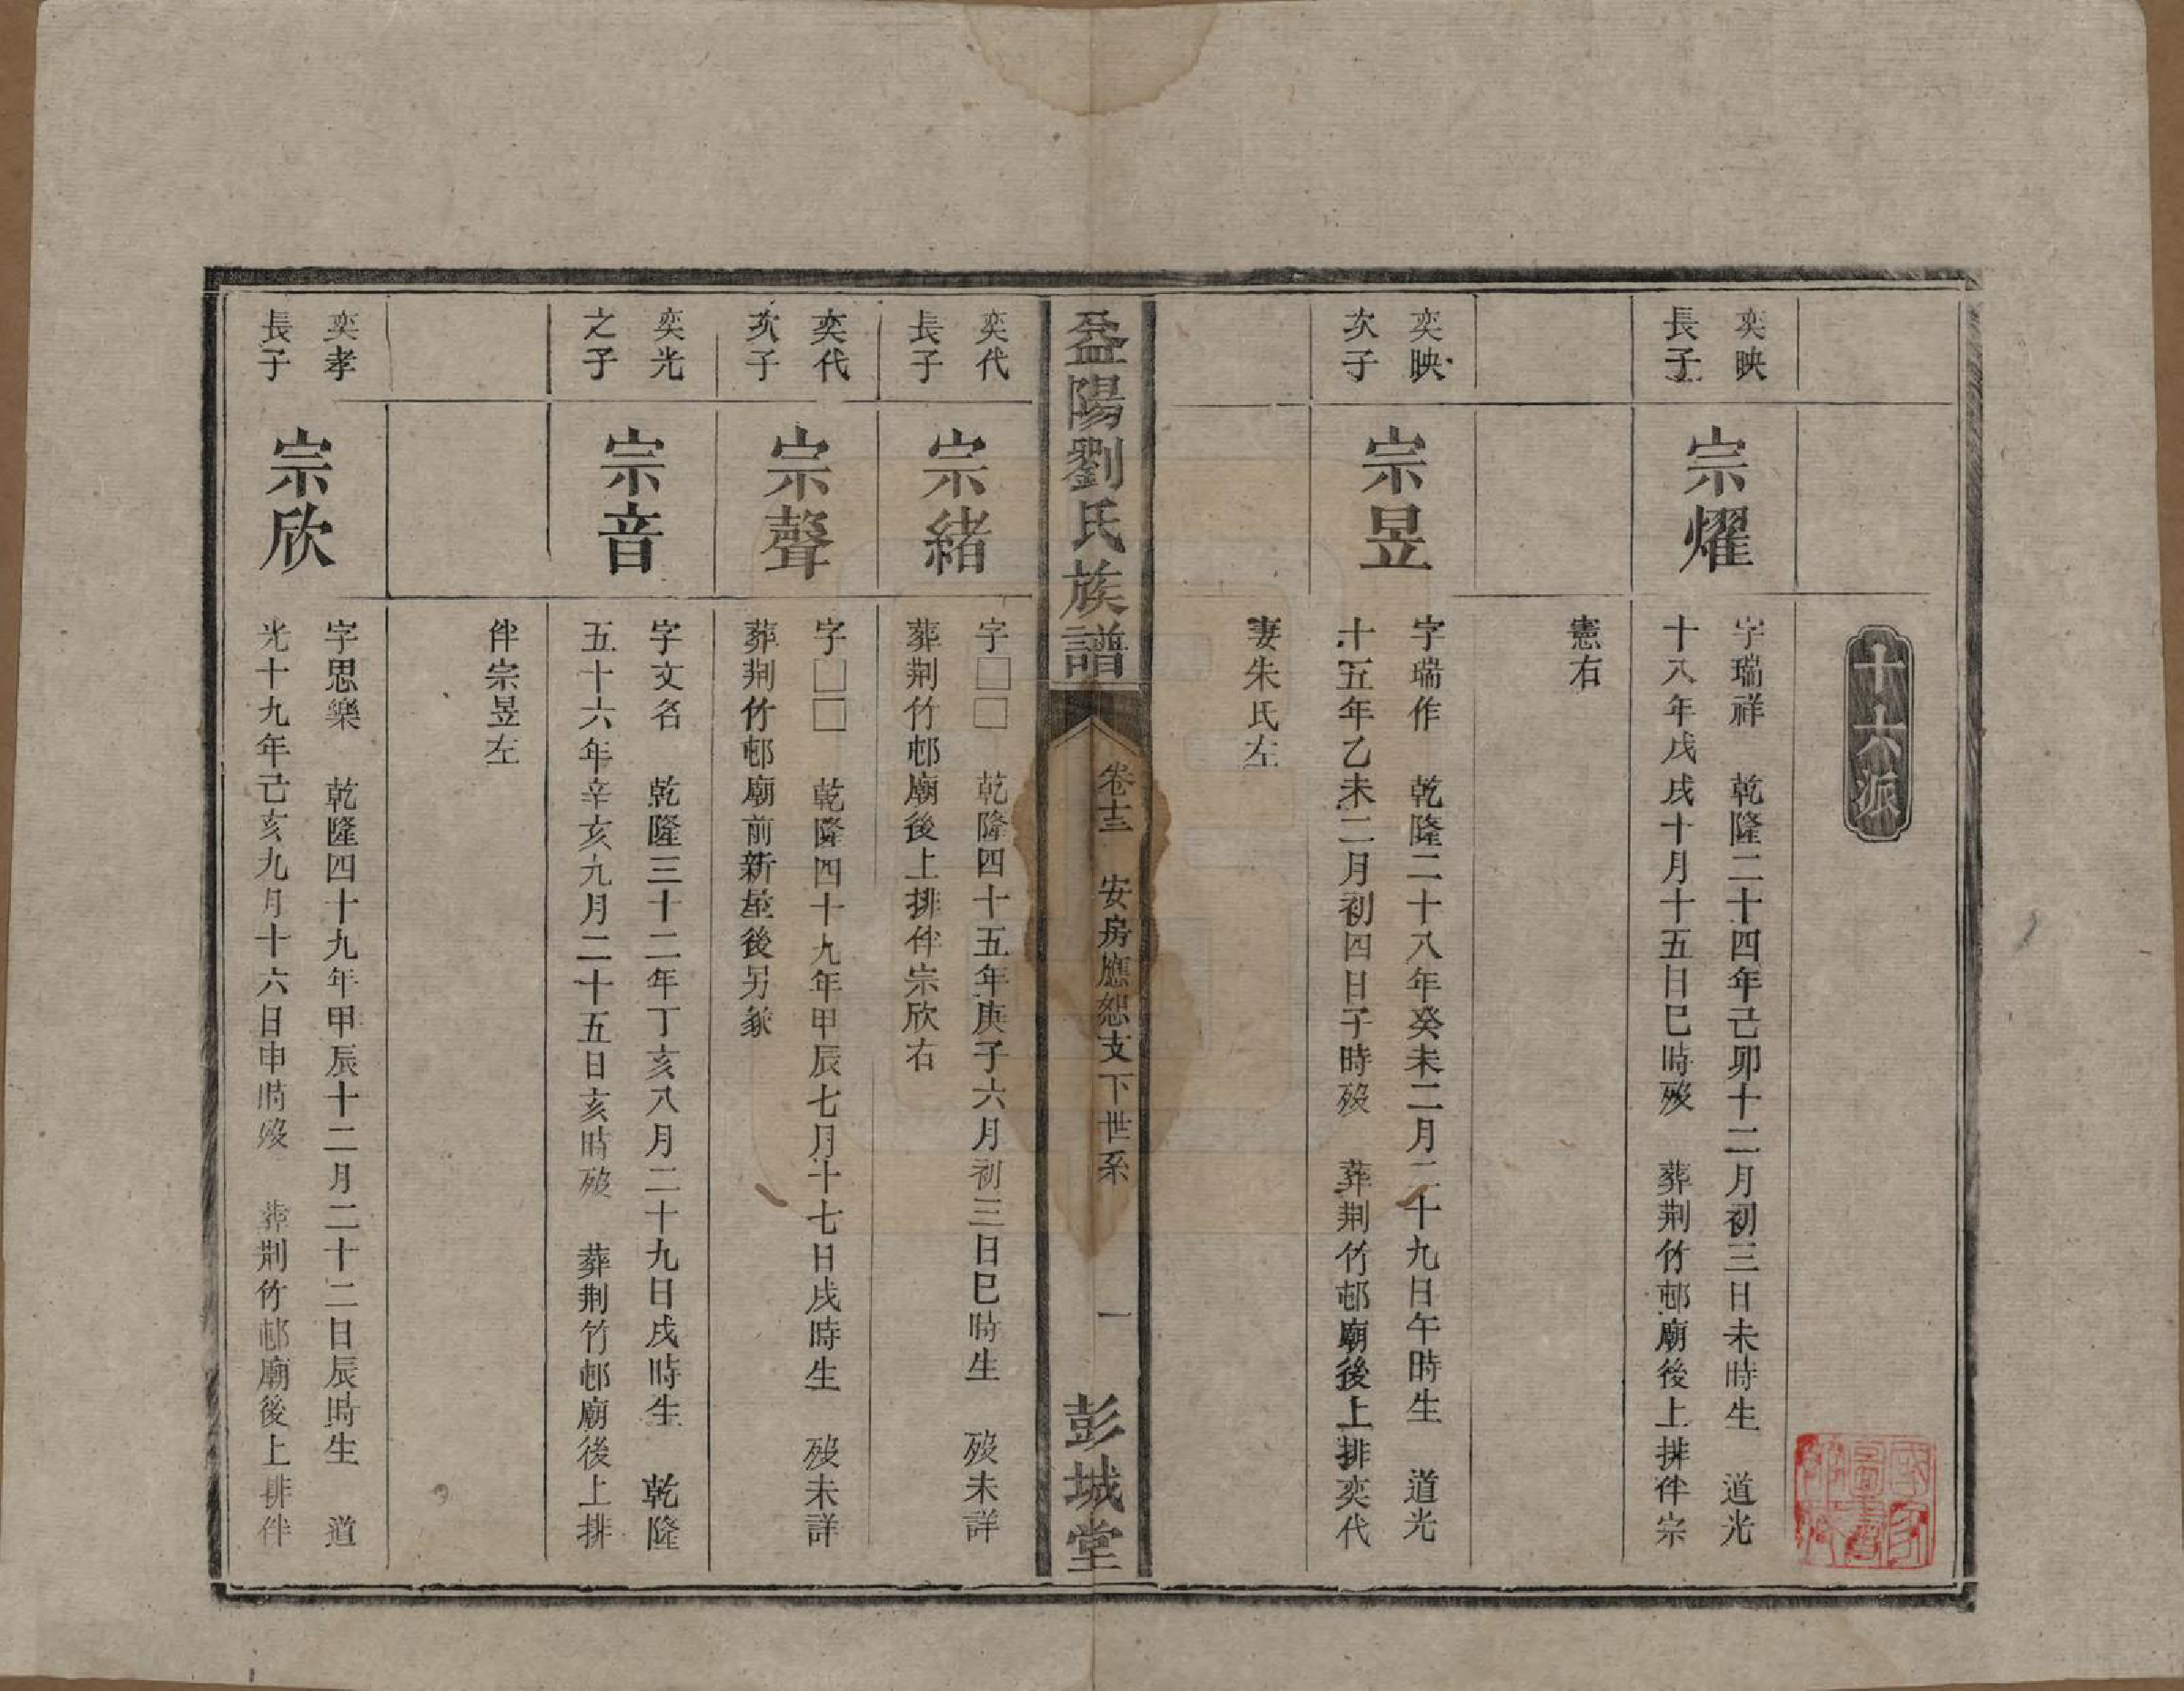 十六派
奕映
長子
宗燿
字瑞祥　乾隆二十四年己卯十二月初三日未時生　道光
十八年戊戌十月十五日巳時歿　葬荆竹邨廟後上排伴宗
憲右
奕映
次子
宗昱
字瑞作　乾隆二十八年癸未二月二十九日午時生　道光
十五年乙未二月初四日子時歿　葬荆竹邨廟後上排奕代
妻朱氏左
益陽劉氏族譜
卷十三　安房應恕支下世系　一
彭城堂
奕代
長子
宗緒
字□□　乾隆四十五年庚子六月初三日巳時生　歿未詳
葬荆竹邨廟後上排伴宗欣右
奕代
次子
宗聲
字□□　乾隆四十九年甲辰七月十七日戌時生　歿未詳
葬荆竹邨廟前新塋後另冢
奕光
之子
宗音
字文名　乾隆三十二年丁亥八月二十九日戌時生　乾隆
五十六年辛亥九月二十五日亥時歿　葬荆竹邨廟後上排
伴宗昱左
奕孝
長子
宗欣
字思樂　乾隆四十九年甲辰十二月二十二日辰時生　道
光十九年己亥九月十六日申時歿　葬荆竹邨廟後上排伴